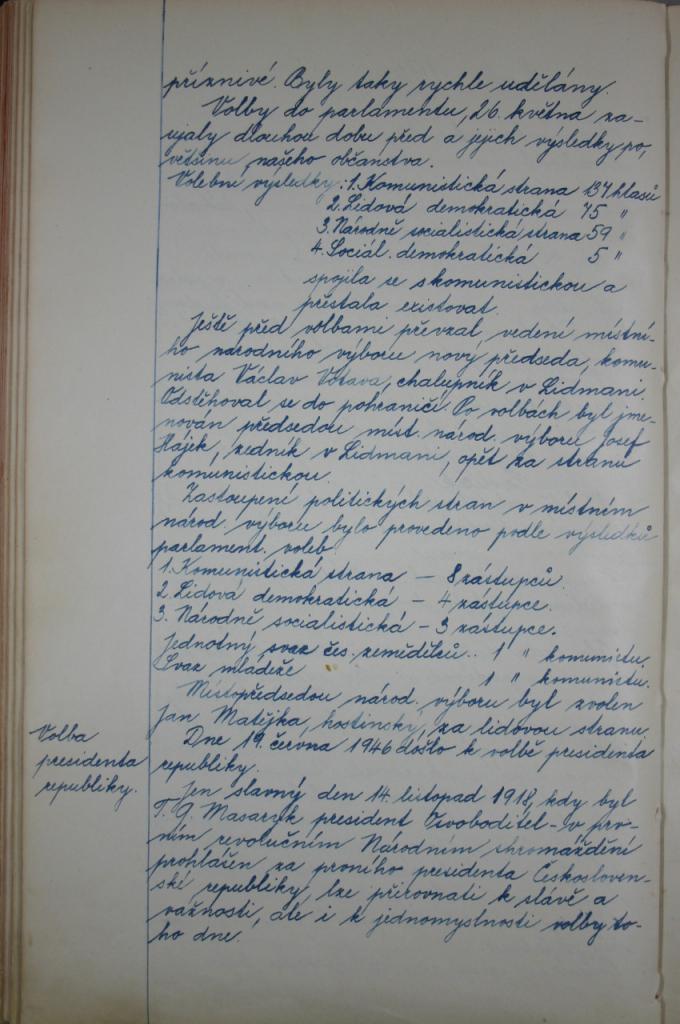 příznivé. Byly taky rychle udělány.
Volby do parlamentu, 26. května za-
ujaly dlouhou dobu před a jejich výsledky po,
většinu našeho občanstva.
Volební výsledky: 1. Komunistická strana 137 hlasů
2. Lidová demokratická 75 "
3. Národně socialistická strana 59 "
4. Sociál. demokratická 5 "
spojila se s komunistickou a
přestala existovat.
Ještě před volbami převzal vedení místní-
ho národního výboru nový předseda, komu-
nista Václav Votava, chalupník v Lidmani.
Odstěhoval se do pohraničí. Po volbách byl jme-
nován předsedou míst. národ. výboru Josef
Hájek, zedník v Lidmani, opět za stranu
komunistickou.
Zastoupení politických stran v místním
národ. výboru bylo provedeno podle výsledků
parlament. voleb.
1. Komunistická strana – 8 zástupců.
2. Lidová demokratická – 4 zástupce.
3. Národně socialistická – 3 zástupce.
Jednotný svaz čes. zemědělců.. 1 " komunistu.
Svaz mládeže 1 " komunistu.
Místopředsedou národ. výboru byl zvolen
Jan Matějka, hostinský, za lidovou stranu.
Volba
presidenta
republiky.
Dne 19. června 1946 došlo k volbě presidenta
republiky.
Jen slavný den 14. listopad 1918, kdy byl
T. G. Masaryk president Osvoboditel - v prv-
ním revolučním Národním shromáždění
prohlášen za prvního presidenta Českosloven-
ské republiky, lze přirovnati k slávě a
važnosti, ale i k jednomyslnosti volby to-
ho dne.